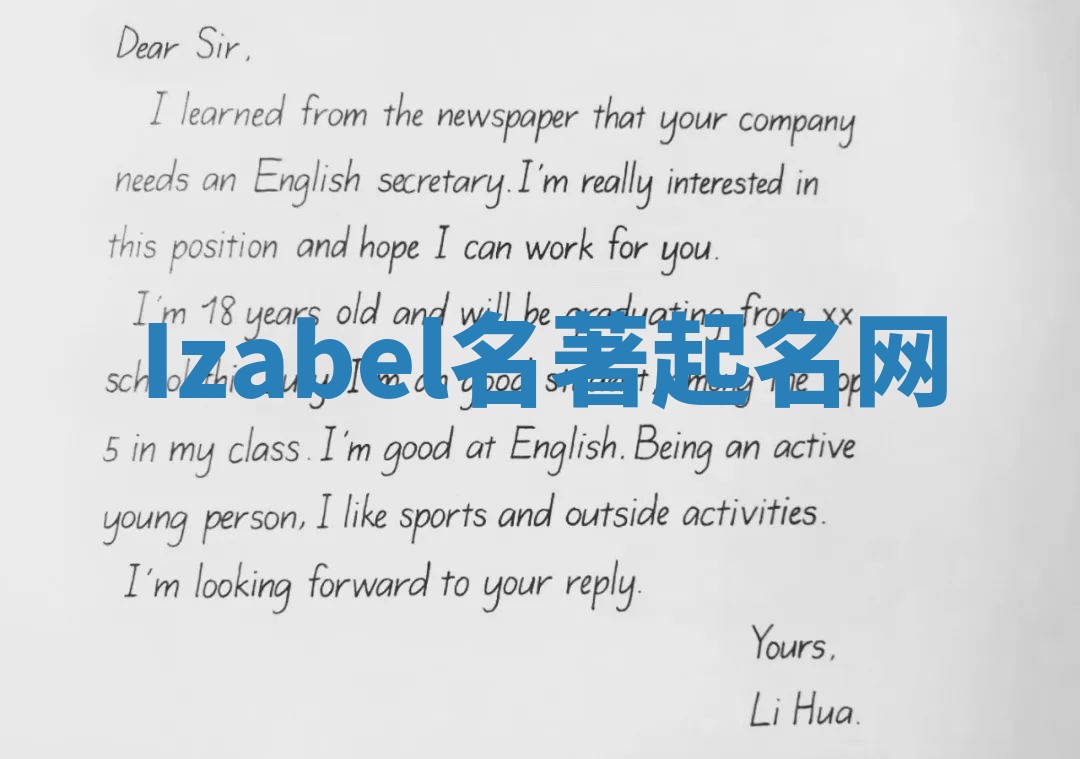 Dear Sir,
I learned from the newspaper that your company
needs an English secretary. I'm really interested in
this position and hope I can work for you.
I'm 18 years old and will be graduating from xx
Izabel名著起名网
I'm good
5 in my class. I'm good at English. Being an active
young person, I like sports and outside activities.
I'm looking forward to your reply.
Yours,
Li Hua.